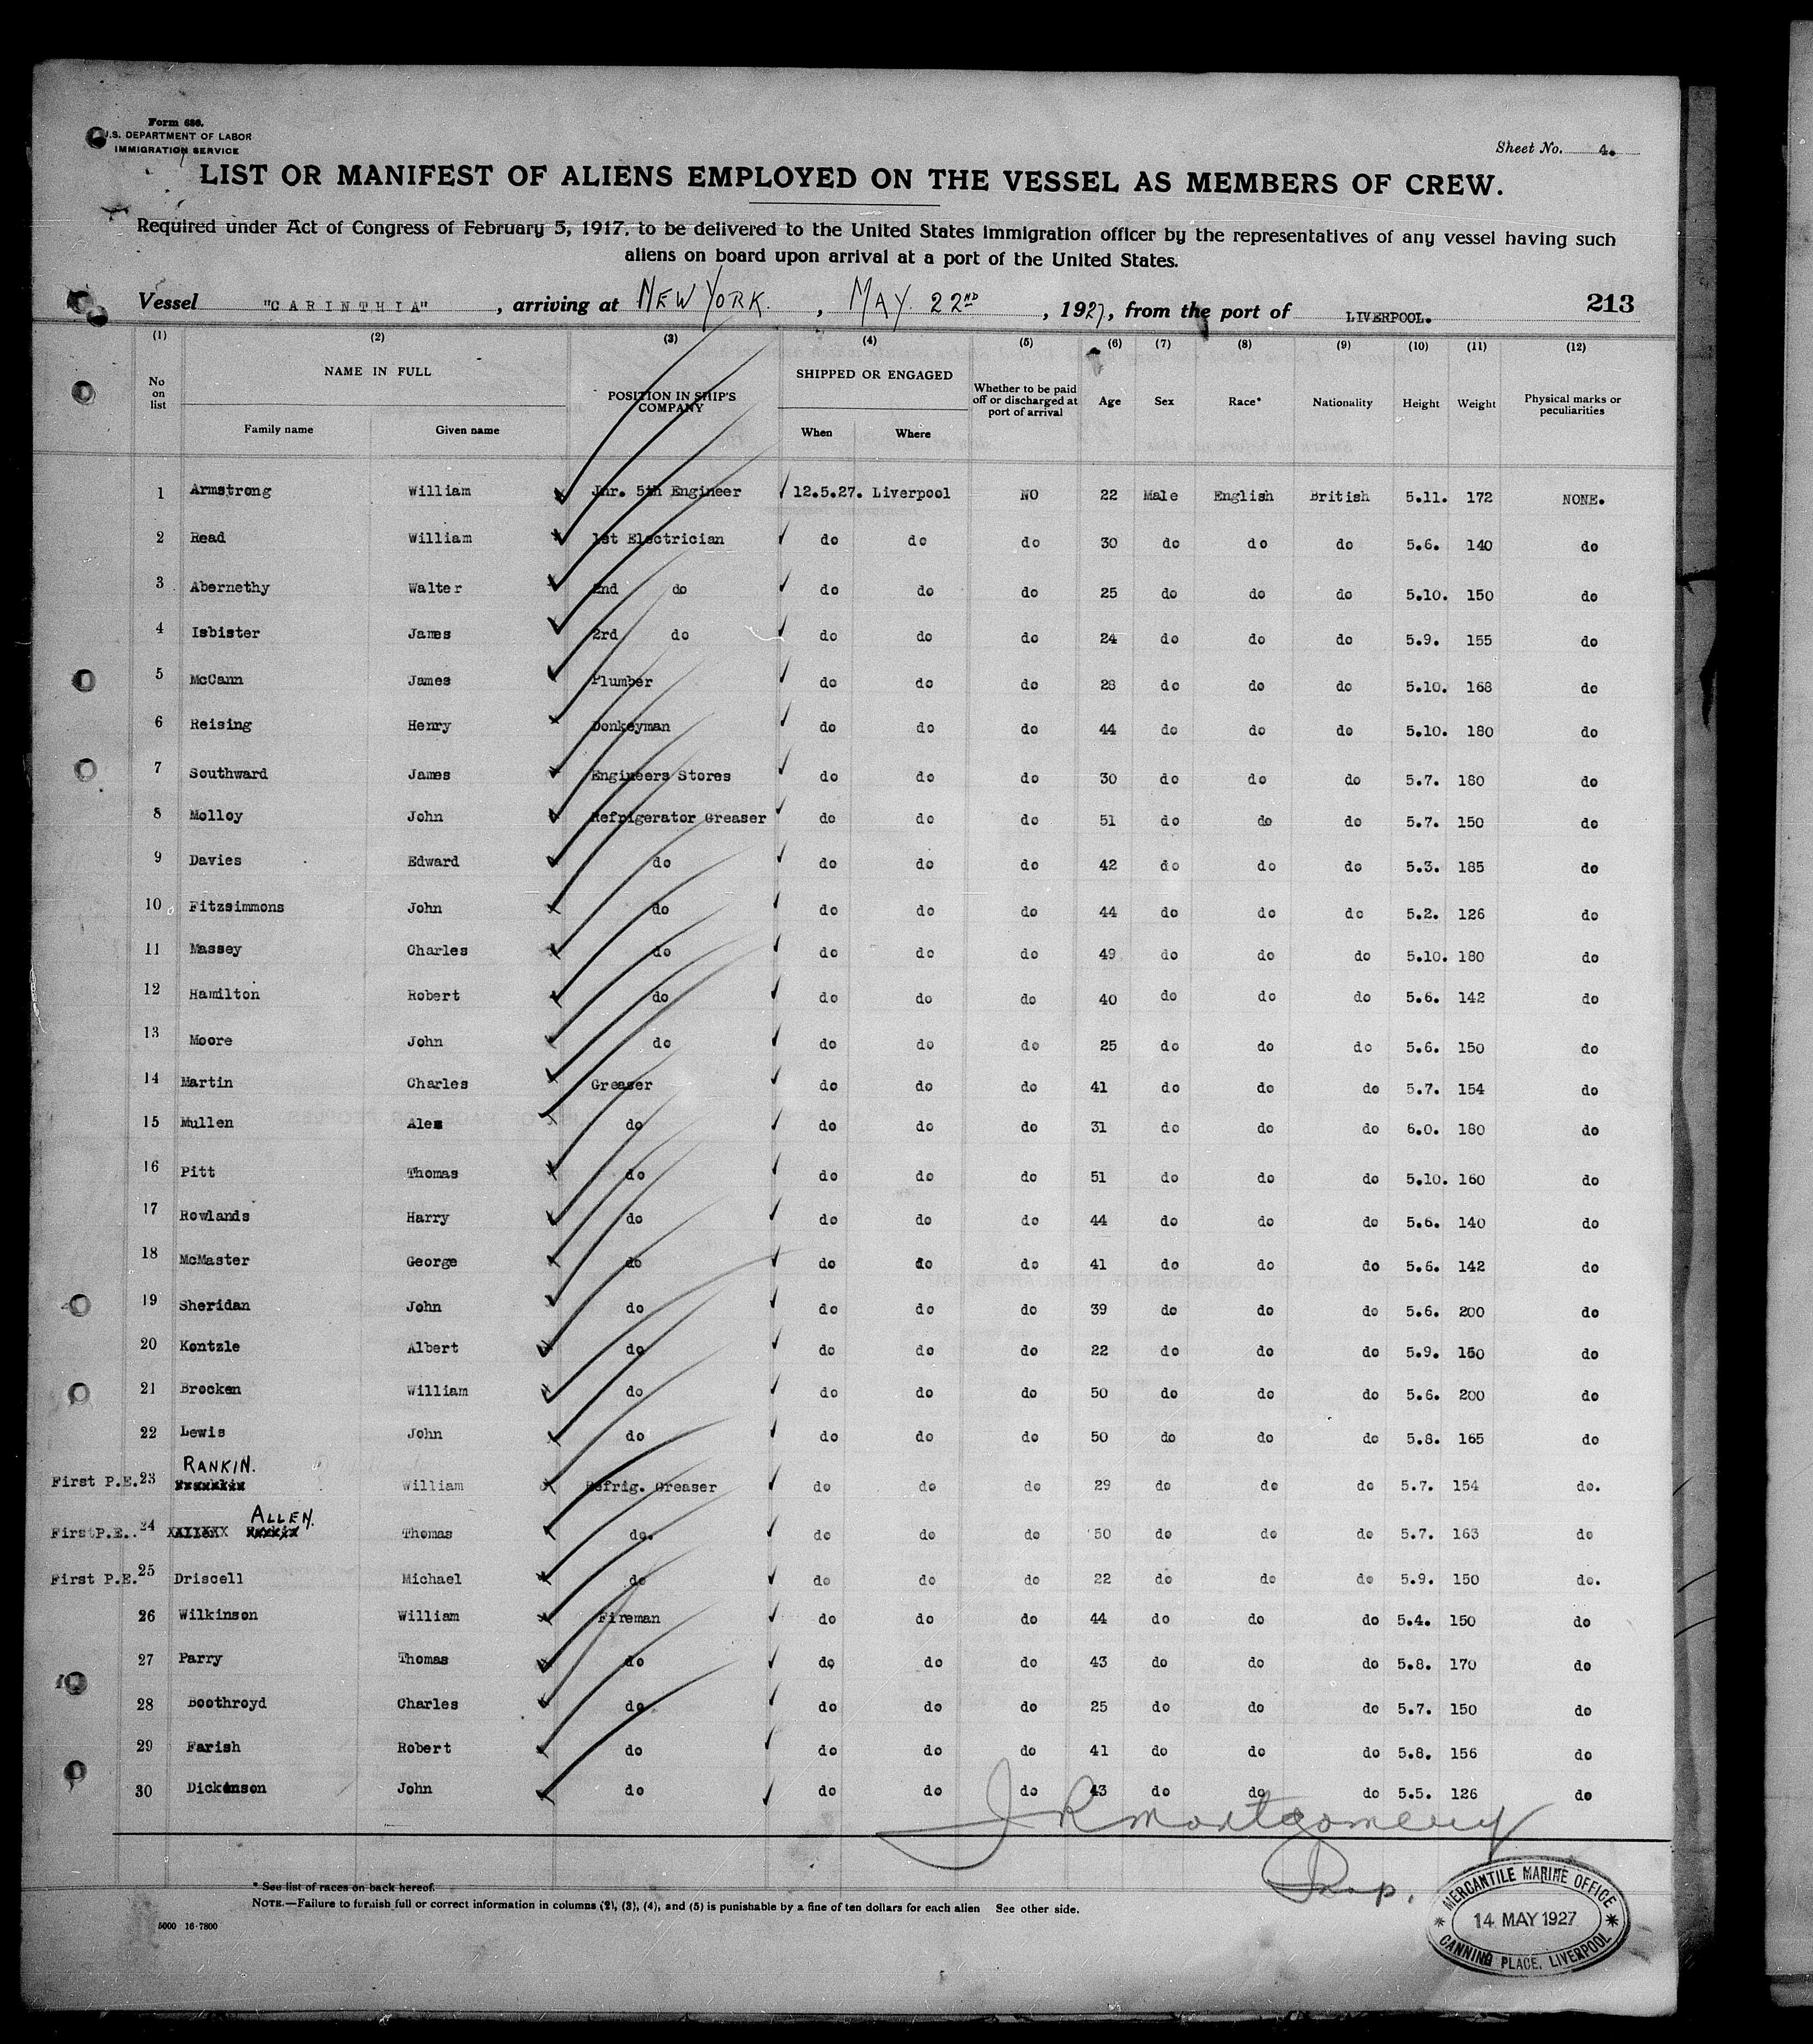 Form 686.
U.S. DEPARTMENT OF LABOR
IMMIGRATION SERVICE
Sheet No. 4.
LIST OR MANIFEST OF ALIENS EMPLOYED ON THE VESSEL AS MEMBERS OF CREW.
Required under Act of Congress of February 5, 1917, to be delivered to the United States immigration officer by the representatives of any vessel having such
aliens on board upon arrival at a port of the United States.
Vessel "CARINTHIA", arriving at NEW YORK., MAY 22ND, 1927, from the port of LIVERPOOL. 213
(1) (2) (3) (4) (5) (6) (7) (8) (9) (10) (11) (12)
No on list NAME IN FULL Family name Given name POSITION IN SHIP'S COMPANY SHIPPED OR ENGAGED When Where Whether to be paid off or discharged at port of arrival Age Sex Race* Nationality Height Weight Physical marks or peculiarities
1 Armstrong William Jnr. 5th Engineer 12.5.27. Liverpool NO 22 Male English British 5.11. 172 NONE.
2 Read William 1st Electrician do do do 30 do do do 5.6. 140 do
3 Abernethy Walter 2nd do do do do 25 do do do 5.10. 150 do
4 Isbister James 3rd do do do do 24 do do do 5.9. 155 do
5 McCann James Plumber do do do 28 do do do 5.10. 168 do
6 Reising Henry Donkeyman do do do 44 do do do 5.10. 180 do
7 Southward James Engineers Stores do do do 30 do do do 5.7. 180 do
8 Molloy John Refrigerator Greaser do do do 51 do do do 5.7. 150 do
9 Davies Edward do do do do 42 do do do 5.3. 185 do
10 Fitzsimmons John do do do do 44 do do do 5.2. 126 do
11 Massey Charles do do do do 49 do do do 5.10. 180 do
12 Hamilton Robert do do do do 40 do do do 5.6. 142 do
13 Moore John do do do do 25 do do do 5.6. 150 do
14 Martin Charles Greaser do do do 41 do do do 5.7. 154 do
15 Mullen Alex do do do do 31 do do do 6.0. 180 do
16 Pitt Thomas do do do do 51 do do do 5.10. 160 do
17 Rowlands Harry do do do do 44 do do do 5.6. 140 do
18 McMaster George do do do do 41 do do do 5.6. 142 do
19 Sheridan John do do do do 39 do do do 5.6. 200 do
20 Kentzle Albert do do do do 22 do do do 5.9. 150 do
21 Brocken William do do do do 50 do do do 5.6. 200 do
22 Lewis John do do do do 50 do do do 5.8. 165 do
First P.E. 23 RANKIN. William Refrig. Greaser do do do 29 do do do 5.7. 154 do.
First P.E.. 24 ALLEN. Thomas do. do do do 50 do do do 5.7. 163 do
First P.E. 25 Driscell Michael do do do do 22 do do do 5.9. 150 do.
26 Wilkinson William Fireman do do do 44 do do do 5.4. 150 do
27 Parry Thomas do do do do 43 do do do 5.8. 170 do
28 Boothroyd Charles do do do do 25 do do do 5.7. 150 do
29 Farish Robert do do do do 41 do do do 5.8. 156 do
30 Dickenson John do do do do 43 do do do 5.5. 126 do
J R Montgomery
* See list of races on back hereof.
NOTE.—Failure to furnish full or correct information in columns (2), (3), (4), and (5) is punishable by a fine of ten dollars for each alien See other side.
5000 16-7800
MERCANTILE MARINE OFFICE
14 MAY 1927
CANNING PLACE, LIVERPOOL